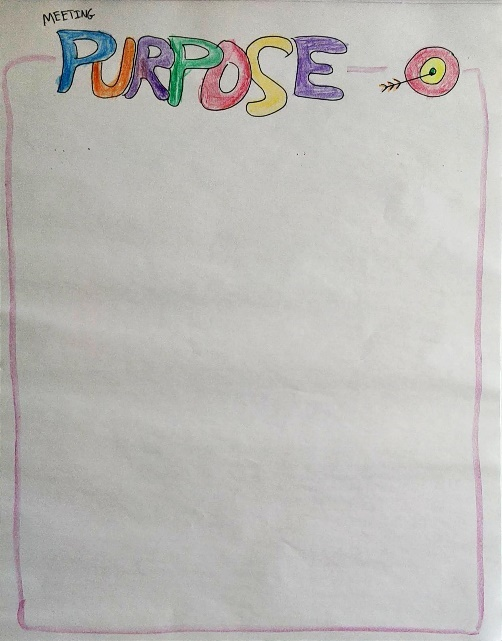 MEETING
PURPOSE